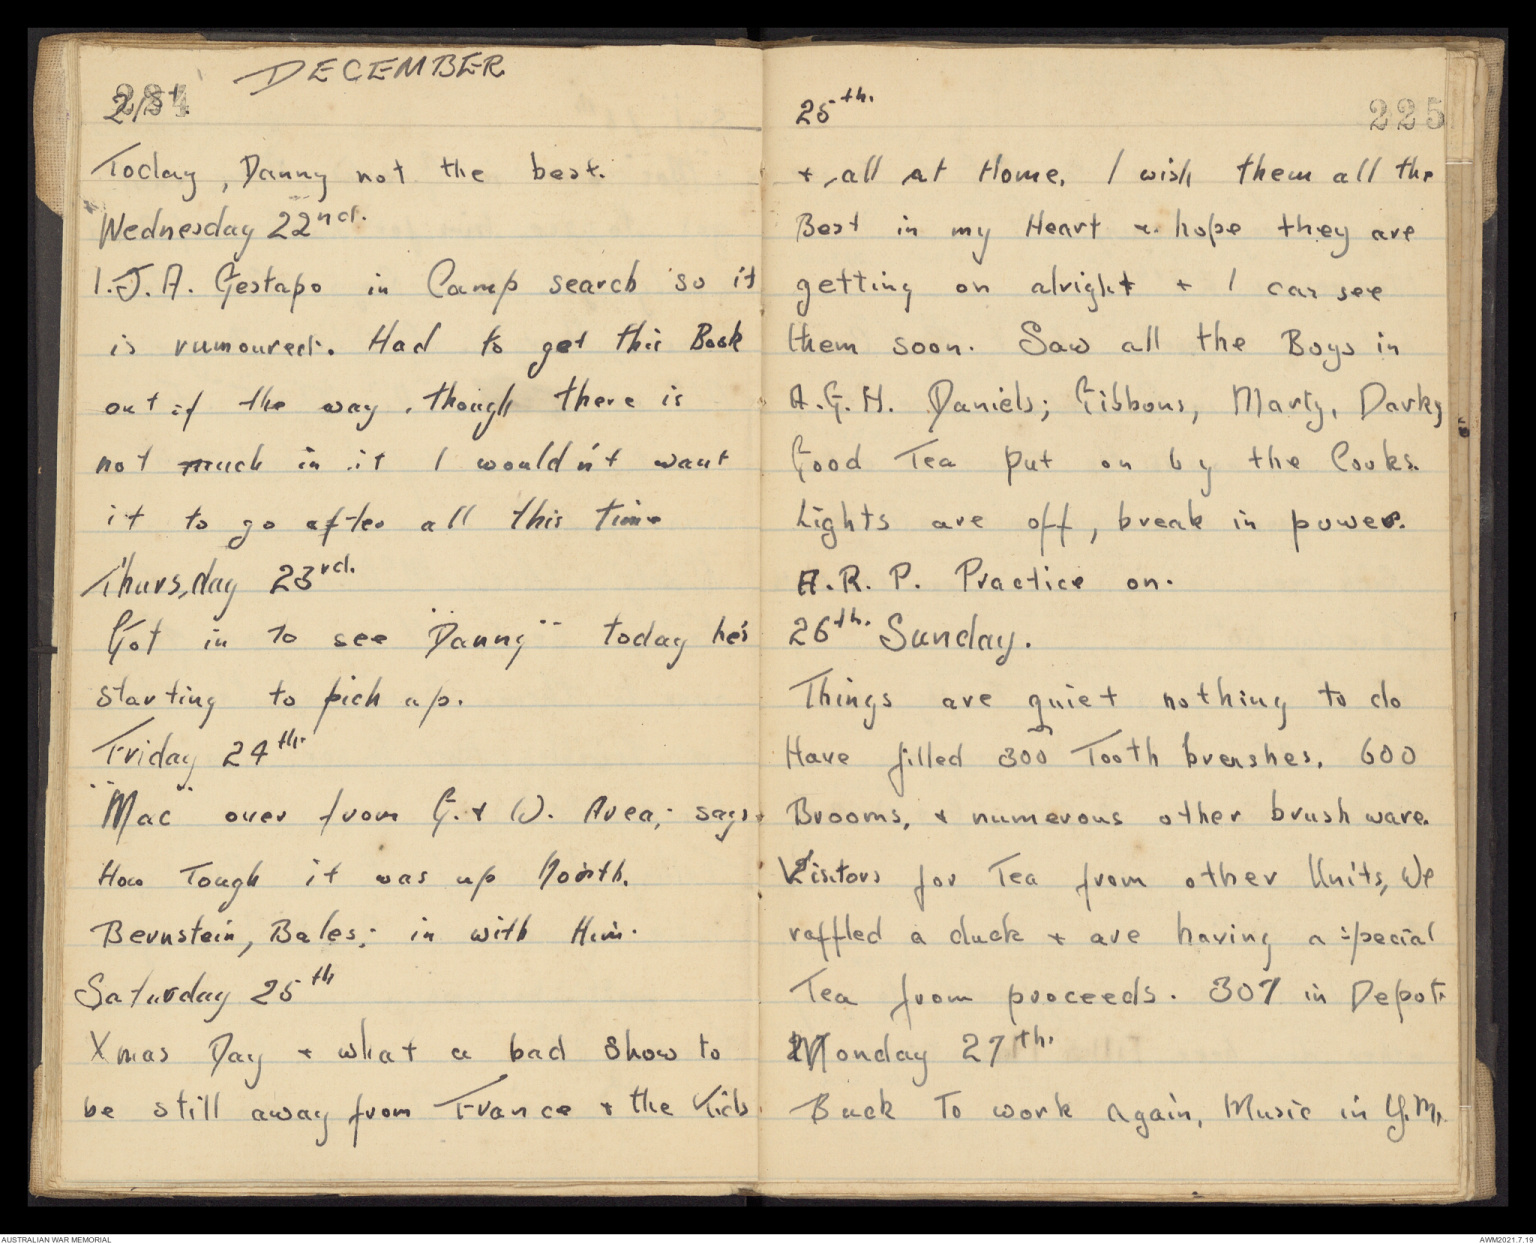 DECEMBER
224
21st.
Today, Danny not the best.
Wednesday 22nd.
I.J.A. Gestapo in Camp search so it
is rumoured. Had to get this Book
out of the way, though there is
not much in it I wouldn't want
it to go after all this time
Thursday 23rd.
Got in to see "Danny" today he's
starting to pick up.
Friday 24th.
"Mac" over from G. + W. Area; says
How Tough it was up North.
Bernstein, Bales; in with Him.
Saturday 25th
Xmas Day + what a bad show to
be still away from France + the Kids
25th.
225
+ all at Home. I wish them all the
Best in my Heart + hope they are
getting on alright + I can see
them soon. Saw all the Boys in
A.G.H. Daniels; Gibbons, Marty, Darky
Good Tea put on by the Cooks.
Lights are off, break in power.
A.R.P. Practice on.
26th. Sunday.
Things are quiet nothing to do
Have filled 300 Tooth brushes, 600
Brooms, + numerous other brush ware.
Visitors for Tea from other Units, We
raffled a duck + are having a special
Tea from proceeds. 307 in Depot.
Monday 27th.
Back To work again, Music in Y.M.
AUSTRALIAN WAR MEMORIAL
AWM2021.7.19